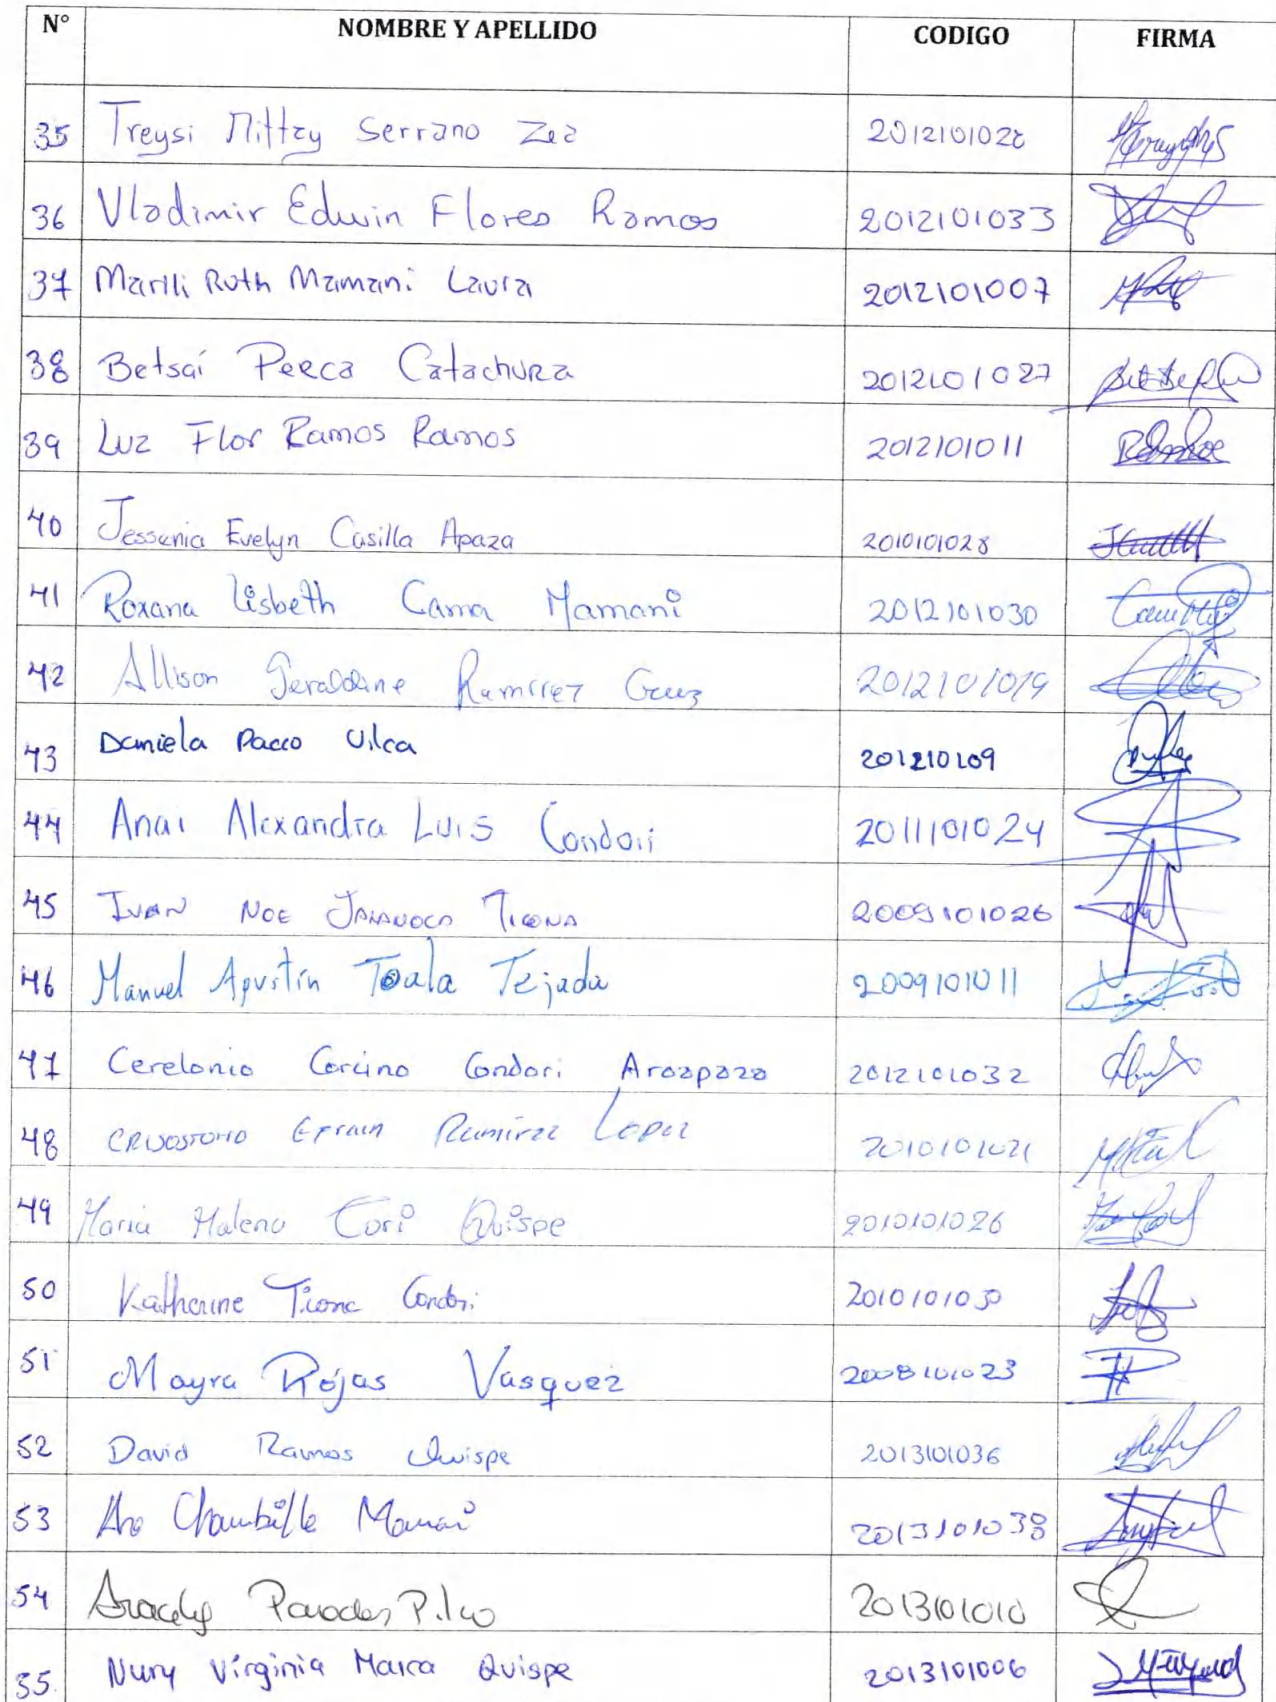 N° NOMBRE Y APELLIDO CODIGO FIRMA
35 Treysi Mittzy Serrano Zea 2012101028
36 Vladimir Edwin Flores Ramos 2012101033
37 Marili Ruth Mamani Laura 2012101007
38 Betsaí Perca Catachura 2012101027
39 Luz Flor Ramos Ramos 2012101011
40 Jessenia Evelyn Casilla Apaza 2010101028
41 Roxana Lisbeth Cama Mamani 2012101030
42 Allison Geraldine Ramirez Cruz 2012101019
43 Daniela Pacco Vilca 201210109
44 Anai Alexandra Luis Condori 2011101024
45 IVAN NOE Ticona 2009101026
46 Manuel Agustín Toala Tejada 2009101011
47 Cerelonio Corcino Condori Aroapaza 2012101032
48 Efrain Ramírez Lopez 2010101021
49 Maria Malena Cori Quispe 2010101026
50 Katherine Ticona Condori 2010101030
51 Mayra Rojas Vasquez 2008101023
52 David Ramos Quispe 2013101036
53 Chambille Mamani 2013101038
54 Aracely Paredes Pilco 2013101010
55. Nury Virginia Marca Quispe 2013101006